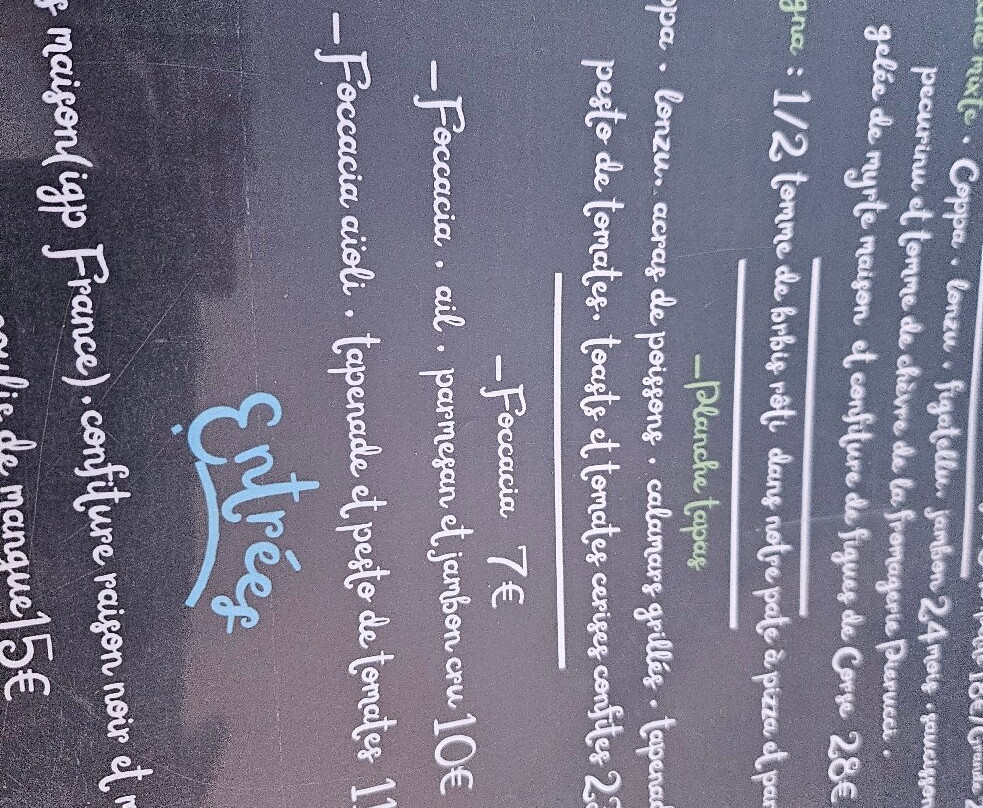 18€/Grande
mixte. Coppa. lonzu. figatellu. jambon 24 mois. saucisson
pecurinu et tomme de chèvre de la fromagerie Pierucci.
gelée de myrte maison et confiture de figues de Corse 28€
gna : 1/2 tomme de brbis rôti dans notre pate à pizza et par
-Planche tapas
ppa . lonzu. acras de poissons . calamars grillés. tapenad
pesto de tomates. toasts et tomates cerises confites 2
-Foccacia 7€
-Foccacia . ail . parmesan et jambon cru 10€
-Foccacia aïoli . tapenade et pesto de tomates 11
Entrées
s maison(igp France). confiture raison noir et
coulis de mangue15€